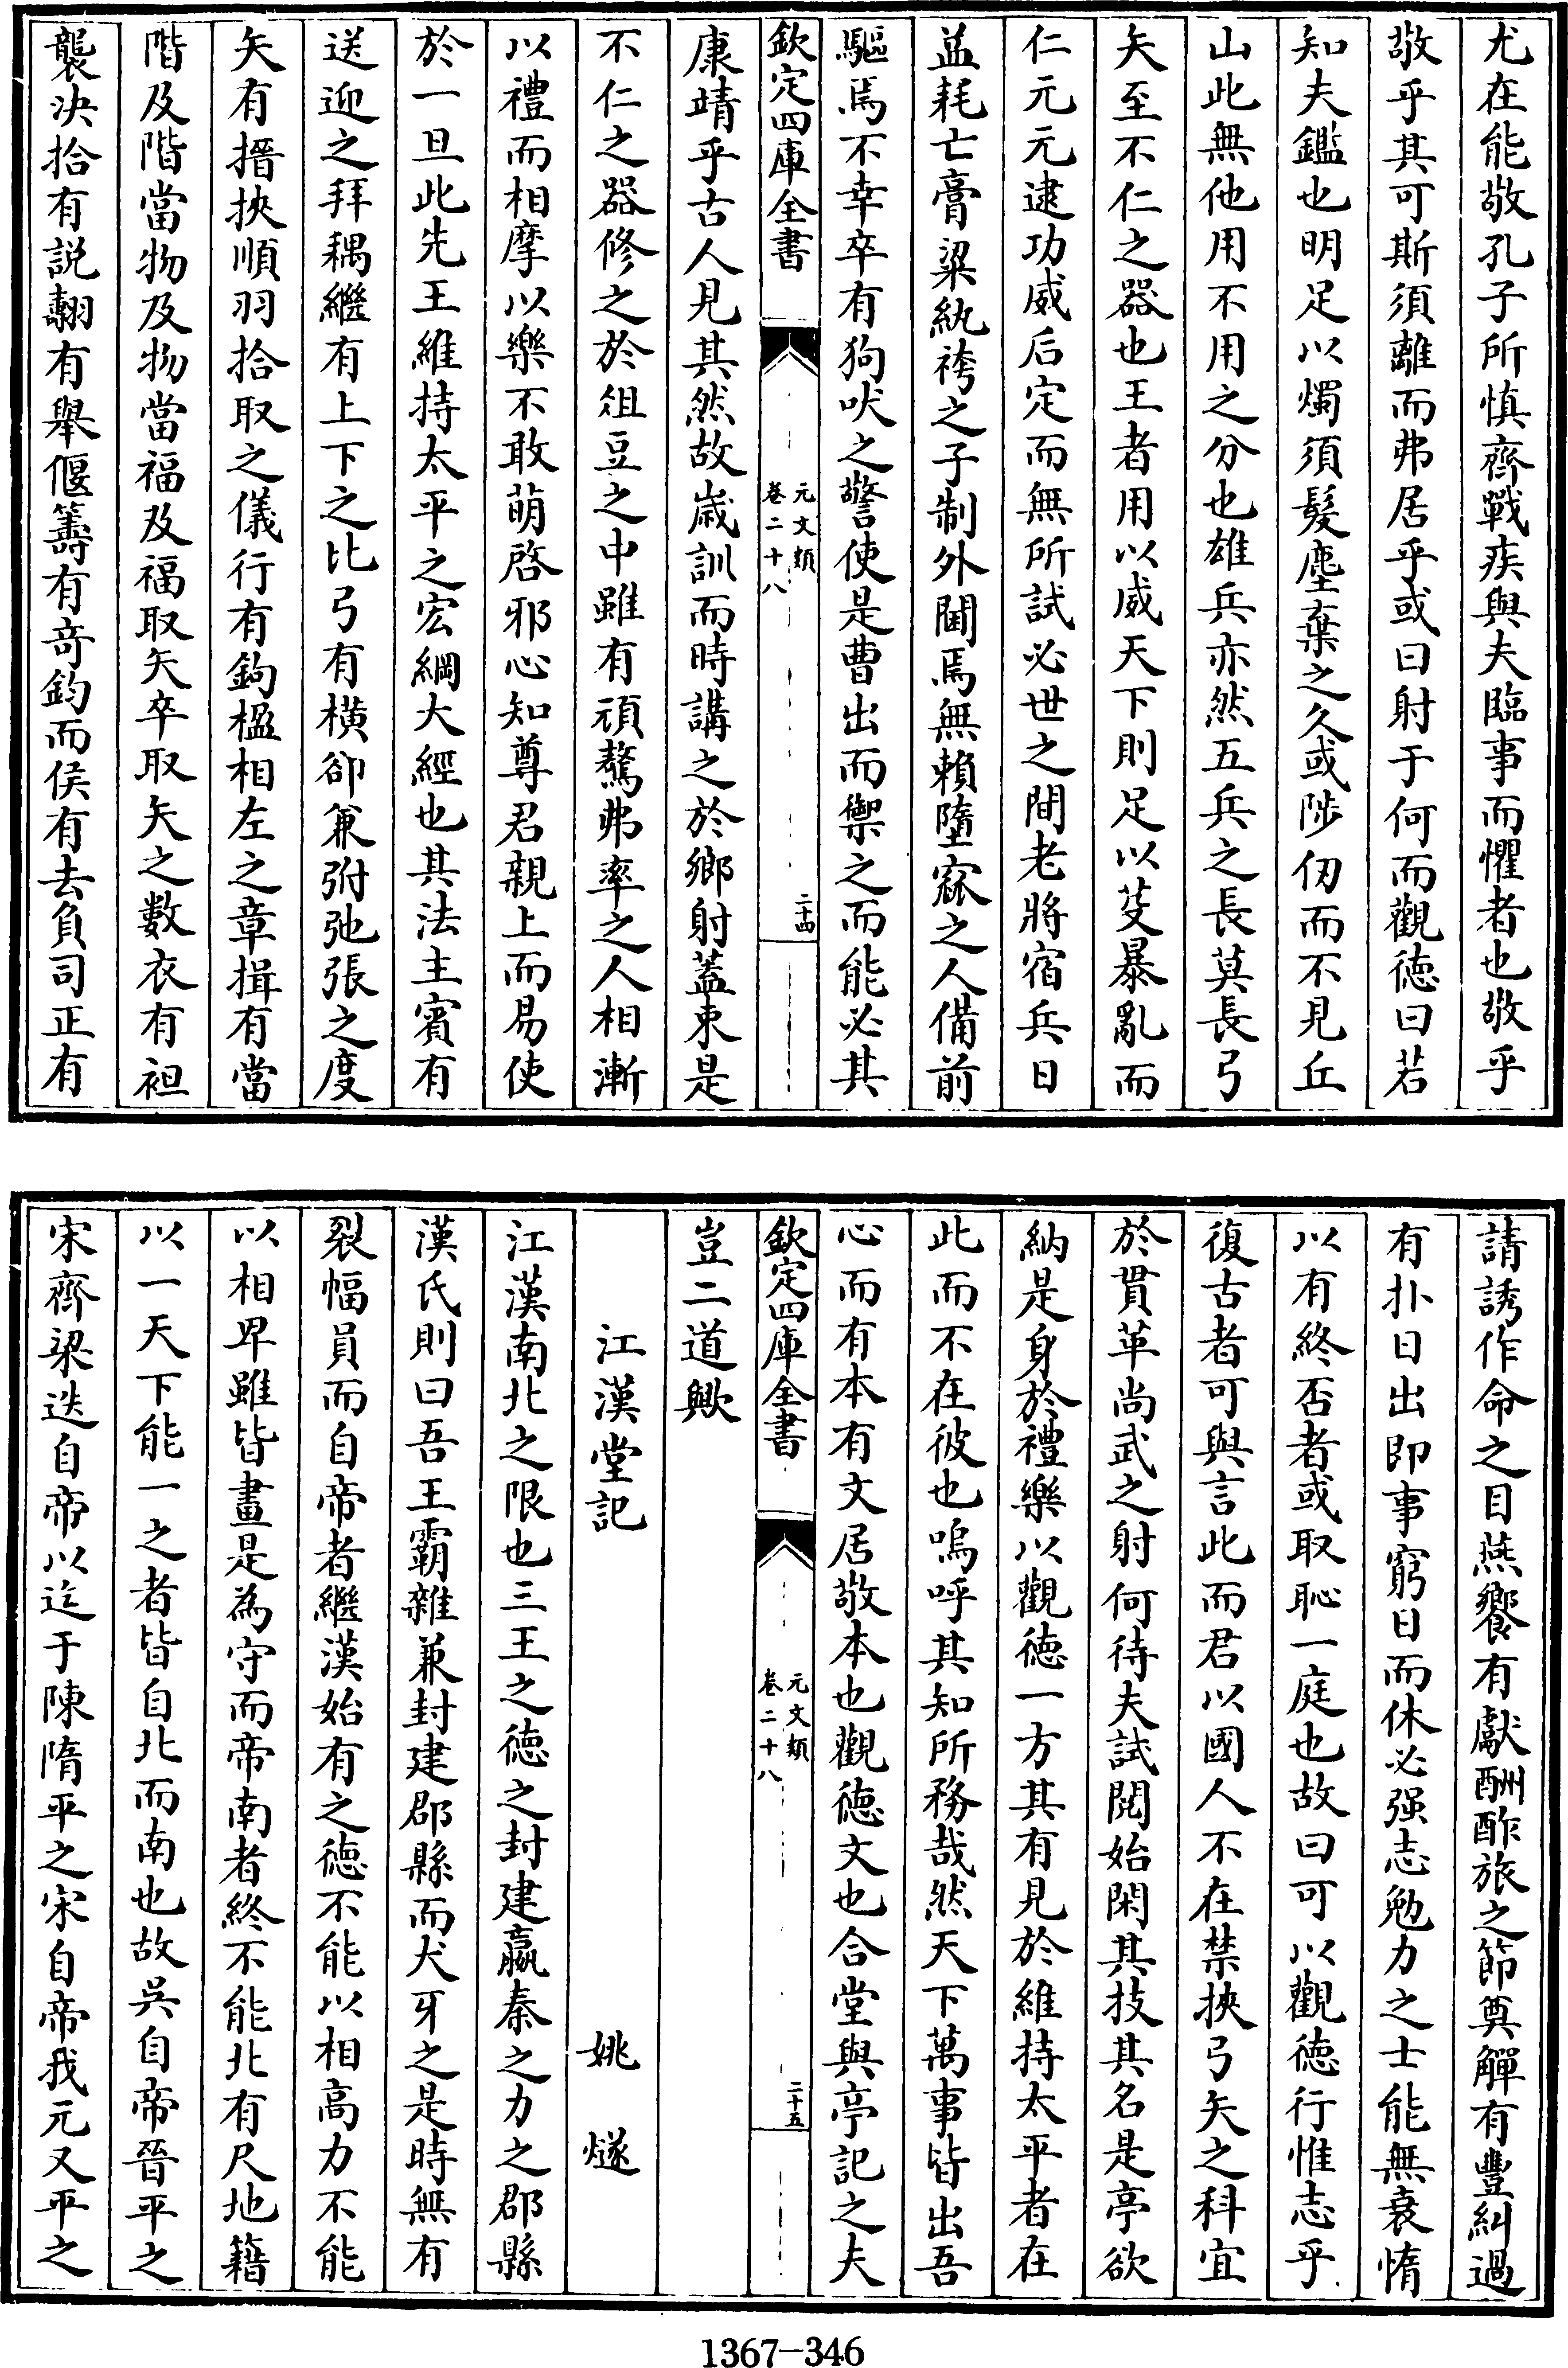 尤在能敬孔子所慎齊戰疾與夫臨事而懼者也敬乎
敬乎其可斯須離而弗居乎或曰射于何而觀徳曰若
知夫鑑也明足以燭須髮塵棄之久或陟仞而不見丘
山此無他用不用之分也雄兵亦然五兵之長莫長弓
矢至不仁之器也王者用以威天下則足以芟暴亂而
仁元元逮功威后定而無所試必世之間老將宿兵日
益耗亡膏粱紈袴之子制外閫焉無賴墮窳之人備前
驅焉不幸卒有狗吠之警使是曹出而禦之而能必其
欽定四庫全書
元文類
卷二十八
二十四
康靖乎古人見其然故歳訓而時講之於鄉射蓋束是
不仁之器修之於俎豆之中雖有頑驁弗率之人相漸
以禮而相摩以樂不敢萌啓邪心知尊君親上而易使
於一旦此先王維持太平之宏綱大經也其法主賓有
送迎之拜耦繼有上下之比弓有橫卻兼弣弛張之度
矢有搢挾順羽拾取之儀行有鉤楹相左之章揖有當
階及階當物及物當福及福取矢卒取矢之數衣有袒
襲決拾有説翿有舉偃籌有竒鈞而侯有去負司正有
請誘作命之目燕饗有獻酬酢旅之節奠觶有豐糾過
有扑日出即事窮日而休必强志勉力之士能無衰惰
以有終否者或取恥一庭也故曰可以觀徳行惟志乎
復古者可與言此而君以國人不在禁挾弓矢之科宜
於貫革尚武之射何待夫試閱始閑其技其名是亭欲
納是身於禮樂以觀徳一方其有見於維持太平者在
此而不在彼也嗚呼其知所務哉然天下萬事皆出吾
心而有本有文居敬本也觀徳文也合堂與亭記之夫
欽定四庫全書
元文類
卷二十八
二十五
豈二道歟
江漢堂記 姚燧
江漢南北之限也三王之徳之封建嬴秦之力之郡縣
漢氏則曰吾王霸雜兼封建郡縣而犬牙之是時無有
裂幅員而自帝者繼漢始有之徳不能以相高力不能
以相畀雖皆畫是為守而帝南者終不能北有尺地籍
以一天下能一之者皆自北而南也故吳自帝晉平之
宋齊梁迭自帝以迄于陳隋平之宋自帝我元又平之
1367-346